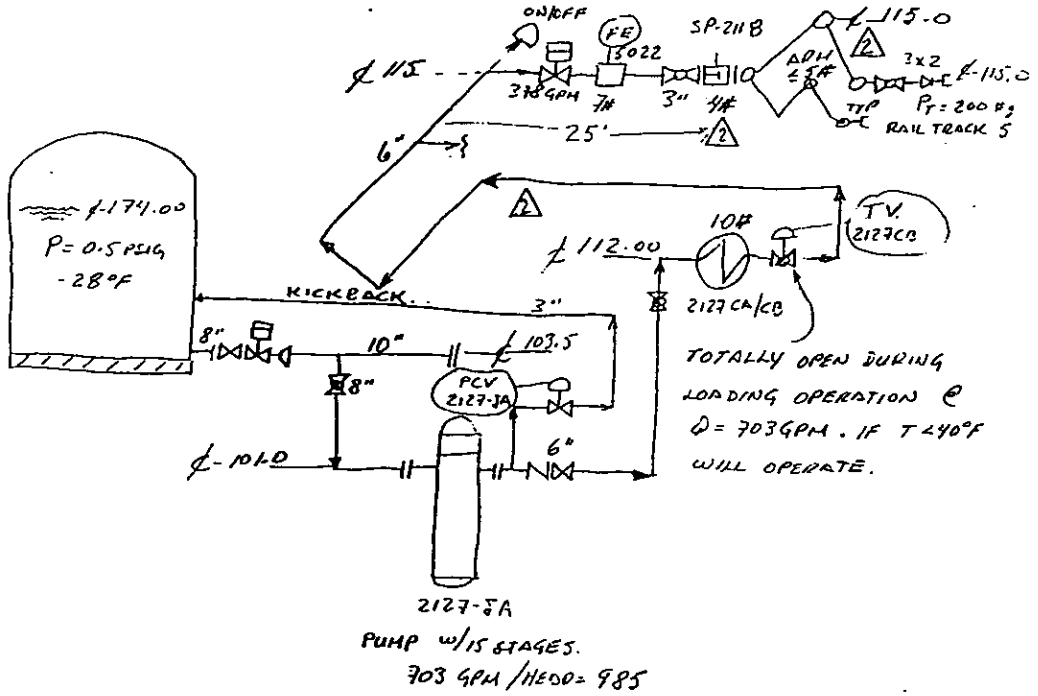 ON/OFF
FE
5022
SP-211B
₵ 115
378 GPM
7#
3"
4#
2
ΔPH
≤5#
₵ 115.0
2
3x2
₵-115.0
TYP
PT = 200 #g
RAIL TRACK 5
25'
2
6"
₵-174.00
P= 0.5 PSIG
-28°F
2
10#
T.V.
2127CB
₵ 112.00
2127 CA/CB
KICKBACK..
3"
8"
10"
₵ 103.5
TOTALLY OPEN DURING
LOADING OPERATION @
Q= 703 GPM. IF T<40°F
WILL OPERATE.
8"
PCV
2127-JA
₵-101.0
6"
2127-JA
PUMP W/15 STAGES.
703 GPM /HEDD= 985